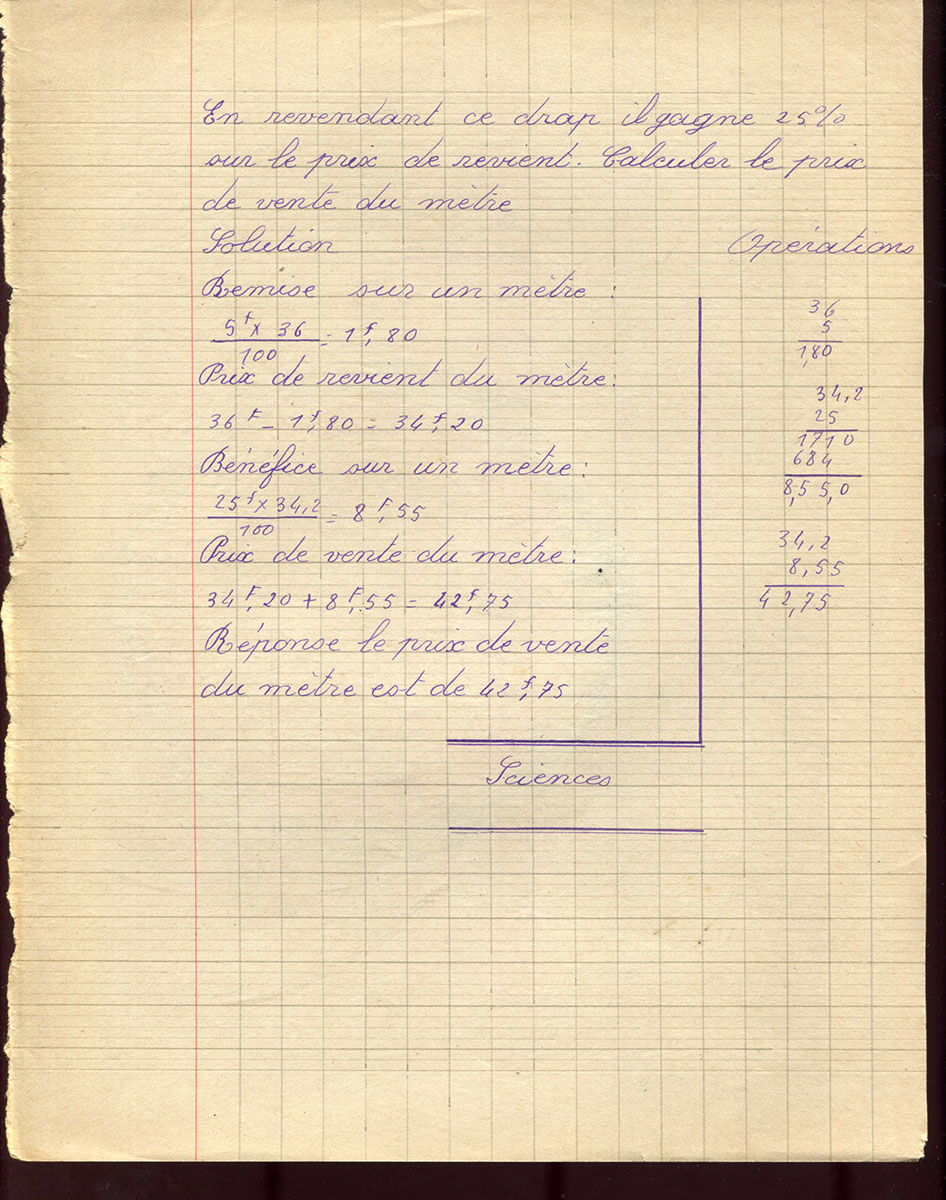 En revendant ce drap il gagne 25%
sur le prix de revient. Calculer le prix
de vente du mètre
Solution
Opérations
Remise sur un mètre :
5f x 36
100
= 1f,80
Prix de revient du mètre :
36f - 1f,80 = 34f,20
Bénéfice sur un mètre :
25f x 34,2
100
= 8f,55
Prix de vente du mètre :
34f,20 + 8f,55 = 42f,75
Réponse le prix de vente
du mètre est de 42f,75
36
5
1,80
34,2
25
1710
684
8,55,0
34,2
8,55
42,75
Sciences